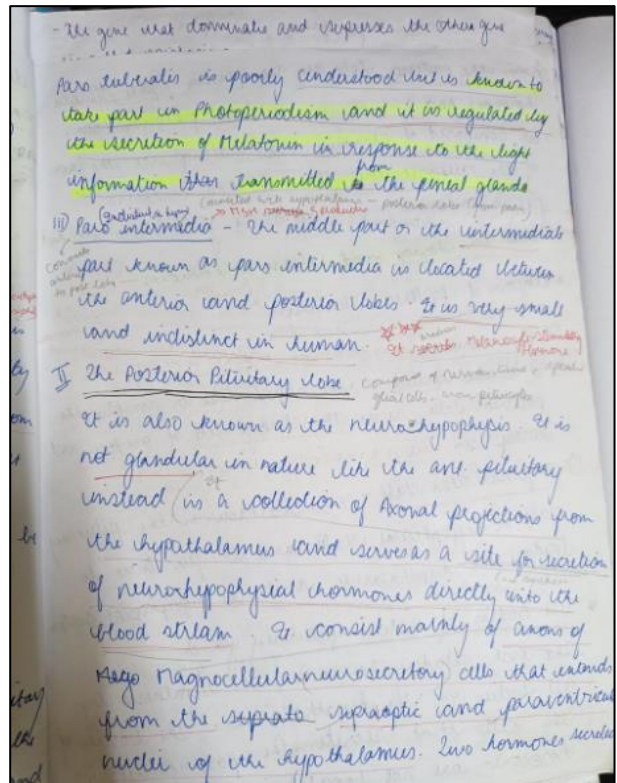 - The gene that dominate and supresses the other gene
Pars tuberalis is poorly understood but is known to
take part in Photoperiodism and it is regulated by
the secretion of Melatonin in response to the light
from
information transmitted to the pineal glands
(connected with hypothalamus - posterior lobe
III) Pars intermedia - The middle part or the intermediate
part known as pars intermedia is located between
the anterior and posterior lobes. It is very small
and indistinct in human. It Melanocyte-stimulating
Hormone
II The Posterior Pituitary lobe
It is also known as the neurohypophysis. It is
not glandular in nature like the ant. pituitary
instead is a collection of Axonal projections from
the hypothalamus and serves as a site for secretion
of neurohepophysial hormones directly into the
blood stream. It consist mainly of axons of
Magnocellular neurosecretory cells that extends
from the suprato supraoptic and paraventricul
nuclei of the hypothalamus. Two hormones secreted